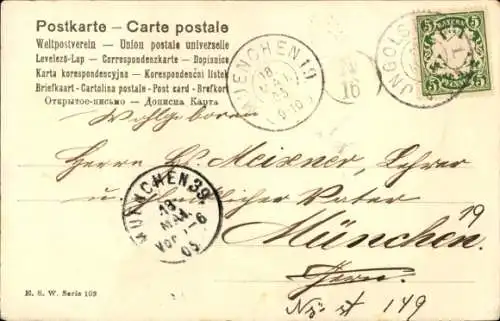 Postkarte – Carte postale
Weltpostverein – Union postale universelle
Levelező-Lap – Correspondenzkarte – Dopisnice
Karta korespondencyjna – Korespondenční lístek
Briefkaart - Cartolina postale - Post card - Brefkort
Открытое-письмо — Дописна Карта
MUENCHEN 19
18
MAI
05
5 BAYERN 5
5 5
INGOLST
Wohlgeboren
Herrn Meixner, Lehrer
u. Vater
München 19
MUENCHEN 39.
18
MAI
Vor 5-6
05
E. S. W. Serie 109
149